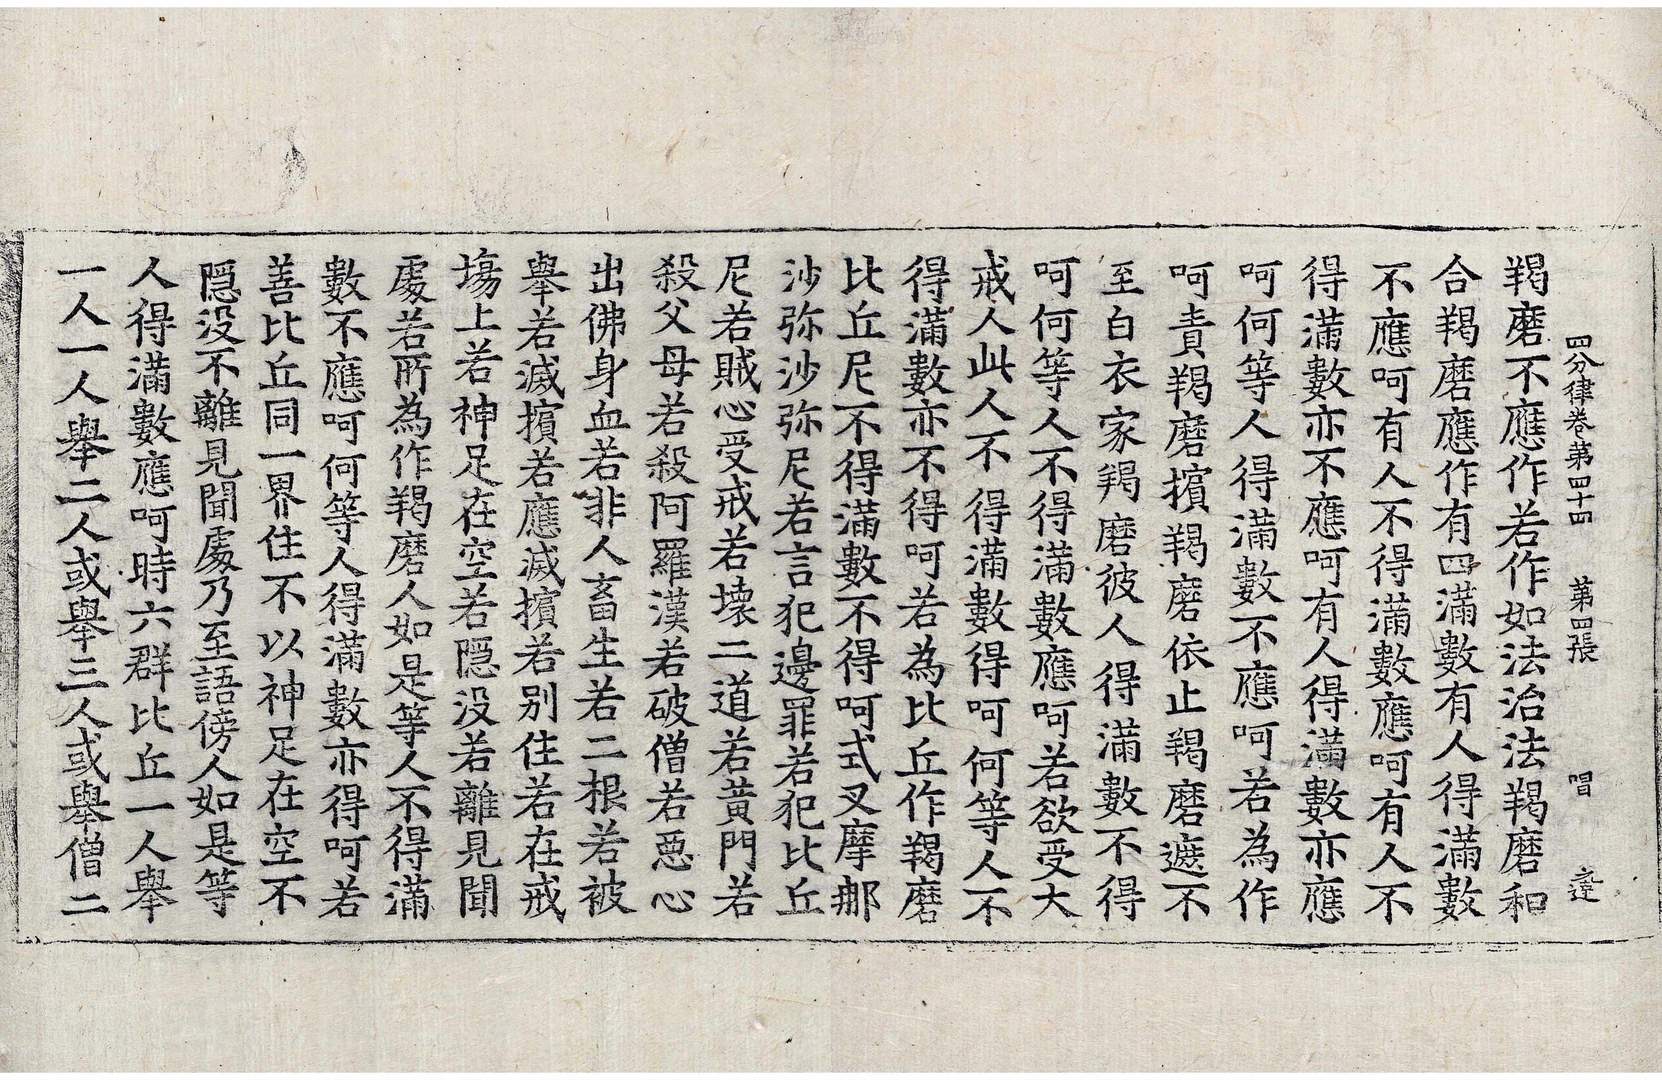 四分律卷第四十四　第四張　唱　逹
羯磨不應作若作如法治法羯磨和
合羯磨應作有四滿數有人得滿數
不應呵有人不得滿數應呵有人不
得滿數亦不應呵有人得滿數亦應
呵何等人得滿數不應呵若為作
呵責羯磨擯羯磨依止羯磨遮不
至白衣家羯磨彼人得滿數不得
呵何等人不得滿數應呵若欲受大
戒人此人不得滿數得呵何等人不
得滿數亦不得呵若為比丘作羯磨
比丘尼不得滿數不得呵式叉摩那
沙弥沙弥尼若言犯邊罪若犯比丘
尼若賊心受戒若壊二道若黃門若
殺父母若殺阿羅漢若破僧若惡心
出佛身血若非人畜生若二根若被
舉若滅擯若應滅擯若別住若在戒
塲上若神足在空若隱没若離見聞
處若所為作羯磨人如是等人不得滿
數不應呵何等人得滿數亦得呵若
善比丘同一界住不以神足在空不
隱没不離見聞處乃至語傍人如是等
人得滿數應呵時六群比丘一人舉
一人一人舉二人或舉三人或舉僧二